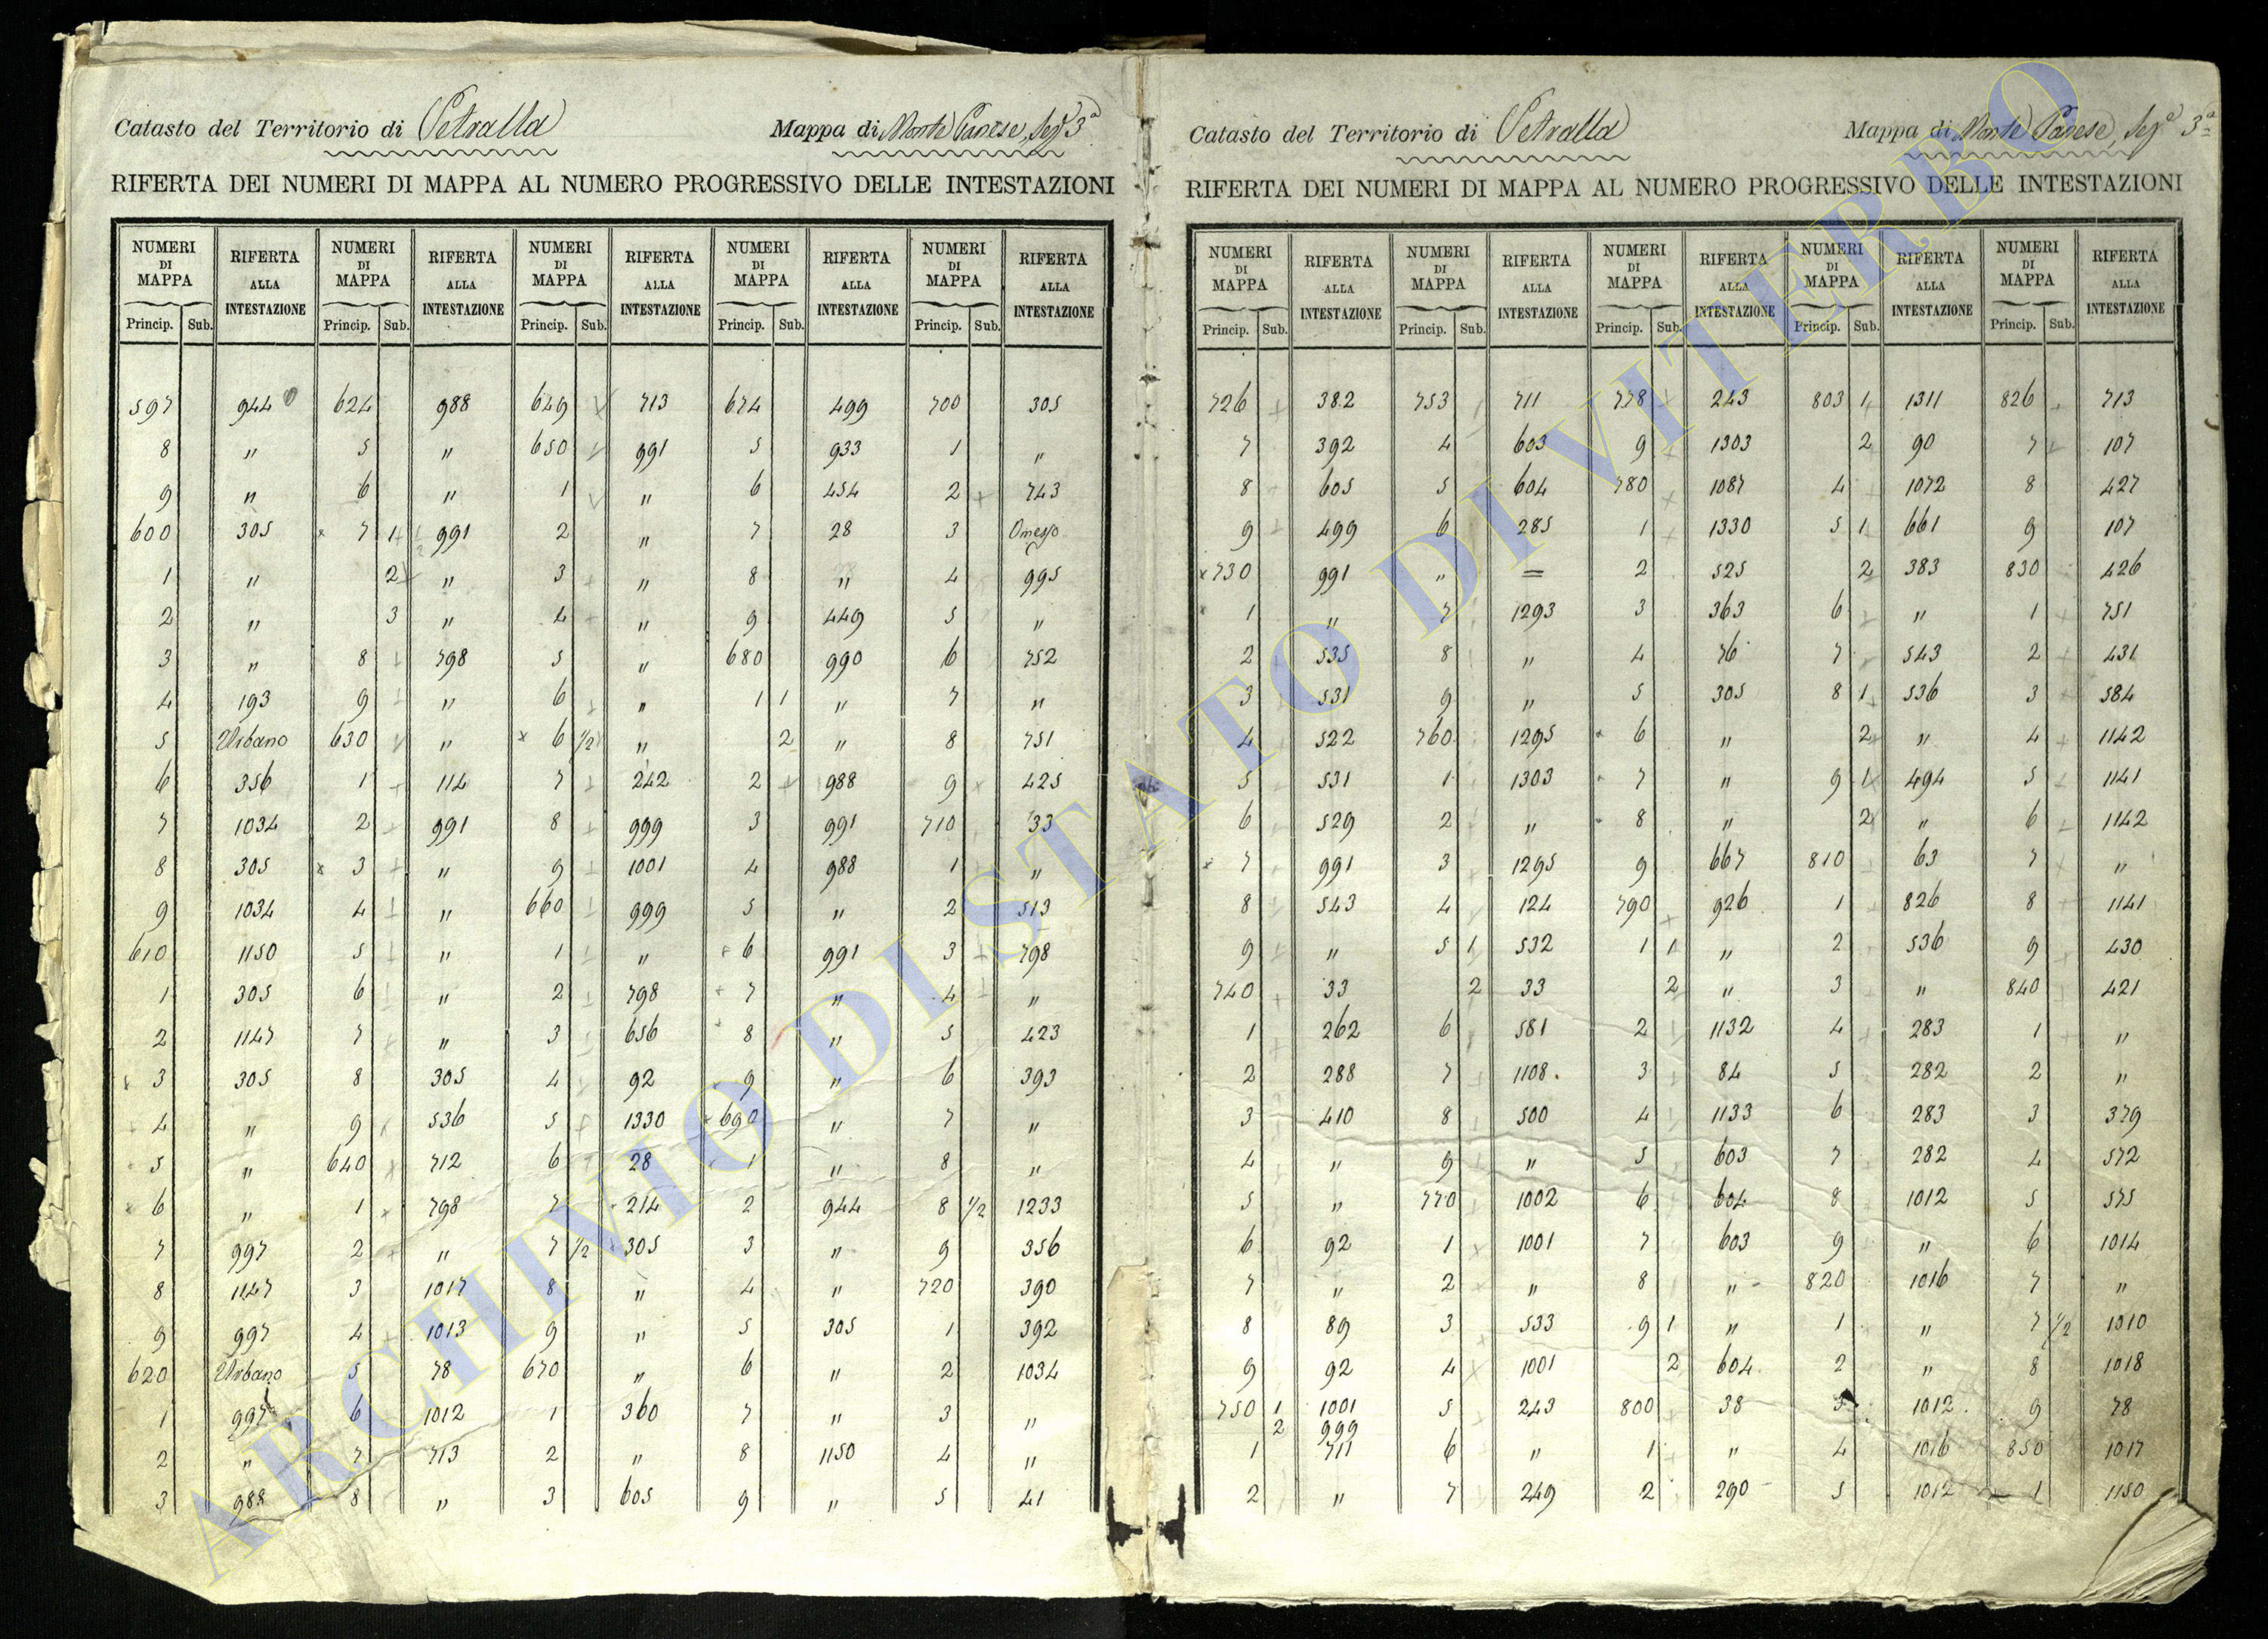 Catasto del Territorio di Vetralla Mappa di Monte Panese, Sez.e 3a
RIFERTA DEI NUMERI DI MAPPA AL NUMERO PROGRESSIVO DELLE INTESTAZIONI
NUMERI DI MAPPA RIFERTA ALLA INTESTAZIONE NUMERI DI MAPPA RIFERTA ALLA INTESTAZIONE NUMERI DI MAPPA RIFERTA ALLA INTESTAZIONE NUMERI DI MAPPA RIFERTA ALLA INTESTAZIONE NUMERI DI MAPPA RIFERTA ALLA INTESTAZIONE
Princip. Sub. Princip. Sub. Princip. Sub. Princip. Sub. Princip. Sub.
597 944 624 988 649 713 674 499 700 305
8 " 5 " 650 991 5 933 1 "
9 " 6 " 1 " 6 454 2 743
600 305 7 1 991 2 " 7 28 3 Omesso
1 " 2 " 3 " 8 " 4 995
2 " 3 " 4 " 9 449 5 "
3 " 8 798 5 " 680 990 6 752
4 193 9 " 6 " 1 1 " 7 "
5 Urbano 630 " 6 1/2 " 2 " 8 751
6 356 1 114 7 242 2 988 9 425
7 1034 2 991 8 999 3 991 710 33
8 305 3 " 9 1001 4 988 1 "
9 1034 4 " 660 999 5 " 2 513
610 1150 5 " 1 " 6 991 3 798
1 305 6 " 2 798 7 " 4 "
2 1147 7 " 3 656 8 " 5 423
3 305 8 305 4 92 9 " 6 393
4 " 9 536 5 1330 690 " 7 "
5 " 640 712 6 28 1 " 8 "
6 " 1 798 7 214 2 944 8 1/2 1233
7 997 2 " 7 1/2 305 3 " 9 356
8 1147 3 1017 8 " 4 " 720 390
9 997 4 1013 9 " 5 305 1 392
620 Urbano 5 78 670 " 6 " 2 1034
1 997 6 1012 1 360 7 " 3 "
2 " 7 713 2 " 8 1150 4 "
3 988 8 " 3 605 9 " 5 41
Catasto del Territorio di Vetralla Mappa di Monte Panese, Sez.e 3a
RIFERTA DEI NUMERI DI MAPPA AL NUMERO PROGRESSIVO DELLE INTESTAZIONI
NUMERI DI MAPPA RIFERTA ALLA INTESTAZIONE NUMERI DI MAPPA RIFERTA ALLA INTESTAZIONE NUMERI DI MAPPA RIFERTA ALLA INTESTAZIONE NUMERI DI MAPPA RIFERTA ALLA INTESTAZIONE NUMERI DI MAPPA RIFERTA ALLA INTESTAZIONE
Princip. Sub. Princip. Sub. Princip. Sub. Princip. Sub. Princip. Sub.
726 382 753 711 778 243 803 1 1311 826 713
7 392 4 603 9 1303 2 90 7 107
8 605 5 604 780 1087 4 1072 8 427
9 499 6 285 1 1330 5 1 661 9 107
730 991 " = 2 525 2 383 830 426
1 " 7 1293 3 363 6 " 1 751
2 535 8 " 4 76 7 543 2 431
3 531 9 " 5 305 8 1 536 3 584
4 522 760 1295 6 " 2 " 4 1142
5 531 1 1303 7 " 9 1 494 5 1141
6 529 2 " 8 " 2 " 6 1142
7 991 3 1295 9 667 810 63 7 "
8 543 4 124 790 926 1 826 8 1141
9 " 5 1 532 1 1 " 2 536 9 430
740 33 2 33 2 " 3 " 840 421
1 262 6 581 2 1132 4 283 1 "
2 288 7 1108 3 84 5 282 2 "
3 410 8 500 4 1133 6 283 3 379
4 " 9 " 5 603 7 282 4 572
5 " 770 1002 6 604 8 1012 5 575
6 92 1 1001 7 603 9 " 6 1014
7 " 2 " 8 " 820 1016 7 "
8 89 3 533 9 1 " 1 " 7 1/2 1310
9 92 4 1001 2 604 2 " 8 1018
750 1 1001 5 243 800 38 3 1012 9 78
2 999
1 711 6 " 1 " 4 1016 850 1017
2 " 7 249 2 290 5 1012 1 1150
ARCHIVIO DI STATO DI VITERBO